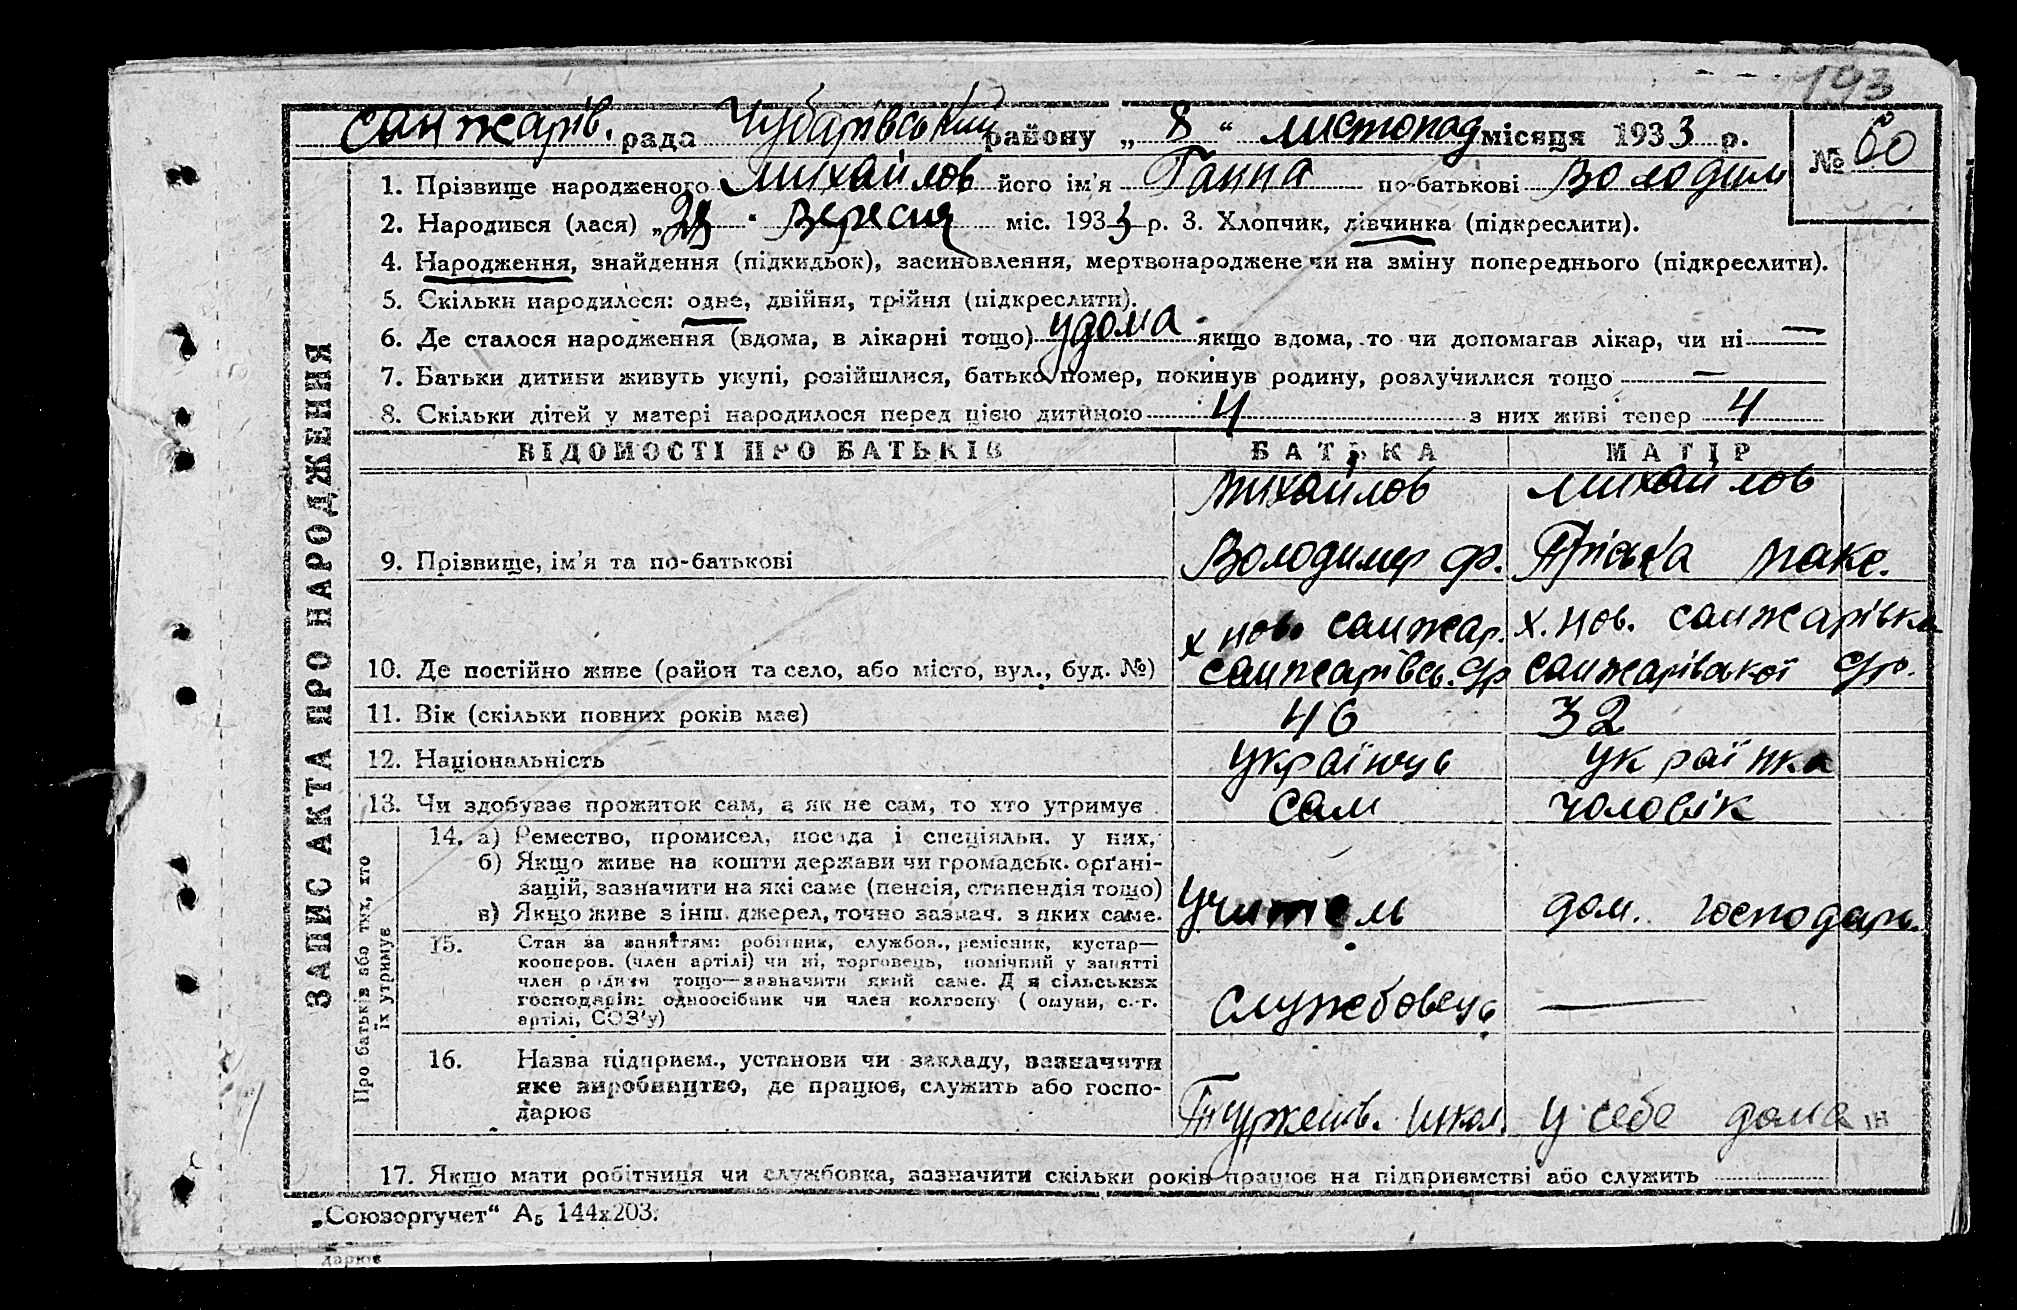 193
Санжарів. рада Чубарівський району „ 8 “ листопад місяця 1933 р.
№ 60
1. Прізвище народженого Михайлов його ім'я Ганна по-батькові Володим
2. Народився (лася) „ “ Вересня міс. 1933 р. 3. Хлопчик, дівчинка (підкреслити).
4. Народження, знайдення (підкидьок), засиновлення, мертвонароджене чи на зміну попереднього (підкреслити).
5. Скільки народилося: одне, двійня, трійня (підкреслити).
6. Де сталося народження (вдома, в лікарні тощо) удома якщо вдома, то чи допомагав лікар, чи ні —
7. Батьки дитини живуть укупі, розійшлися, батько помер, покинув родину, розлучилися тощо —
8. Скільки дітей у матері народилося перед цією дитиною 4 з них живі тепер 4
ЗАПИС АКТА ПРО НАРОДЖЕННЯ
ВІДОМОСТІ ПРО БАТЬКІВ БАТЬКА МАТІР
Михайлов Михайлов
9. Прізвище, ім'я та по-батькові Володимер Ф. Пріська Макс.
х нов. Санжар. х. Нов. Санжарівка
10. Де постійно живе (район та село, або місто, вул., буд. №) Санжарівсь. с/р Санжарівської с/р.
11. Вік (скільки повних років має) 46 32
12. Національність українць українка
13. Чи здобуває прожиток сам, а як не сам, то хто утримує сам чоловік
Про батьків або тих, хто їх утримує
14. а) Ремество, промисел, посада і спеціяльн. у них,
б) Якщо живе на кошти держави чи громадськ. органі-
зацій, зазначити на які саме (пенсія, стипендія тощо)
в) Якщо живе з інш. джерел, точно зазнач. з яких саме. Учитель дом. господарь.
15. Стан за заняттям: робітник, службов., ремісник, кустар—
кооперов. (член артілі) чи ні, торговець, помічний у занятті
член родини тощо—зазначити який саме. Для сільських
господарів: одноосібник чи член колгоспу (комуни, с.-г.
артілі, СОЗ'у) службовець —
16. Назва підприєм., установи чи закладу, зазначити
яке виробництво, де працює, служить або госпо-
дарює школ. у себе дома ін
17. Якщо мати робітниця чи службовка, зазначити скільки років працює на підприємстві або служить
„Союзоргучет“ А5 144х203.
дарює